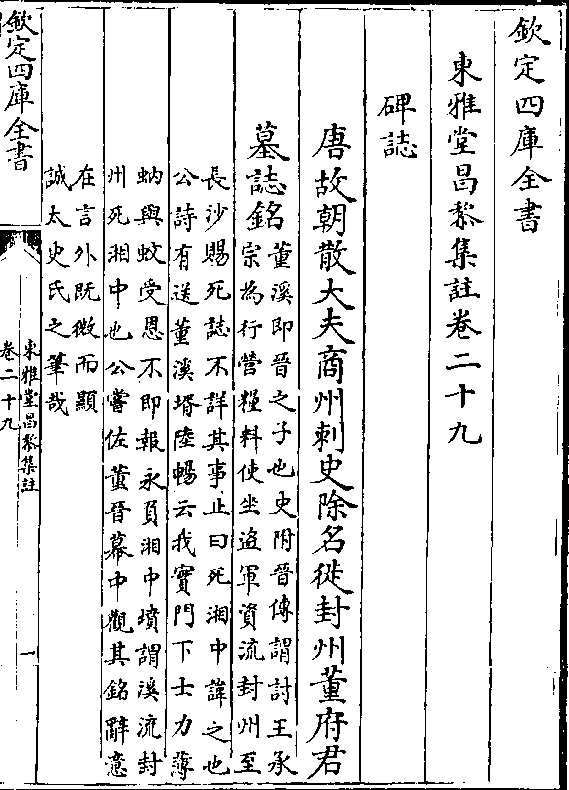 欽定四庫全書
東雅堂昌黎集註卷二十九
碑誌
唐故朝散大夫商州刺史除名徙封州董府君
墓誌銘
董溪即晉之子也史附晉傳謂討王承
宗為行營糧料使坐盜軍資流封州至
長沙賜死誌不詳其事止曰死湘中諱之也
公詩有送董溪壻陸暢云我實門下士力薄
蚋與蚊受恩不即報永負湘中墳謂溪流封
州死湘中也公嘗佐董晉幕中觀其銘辭意
在言外既微而顯
誠太史氏之筆哉
欽定四庫全書
東雅堂昌黎集註
卷二十九
一